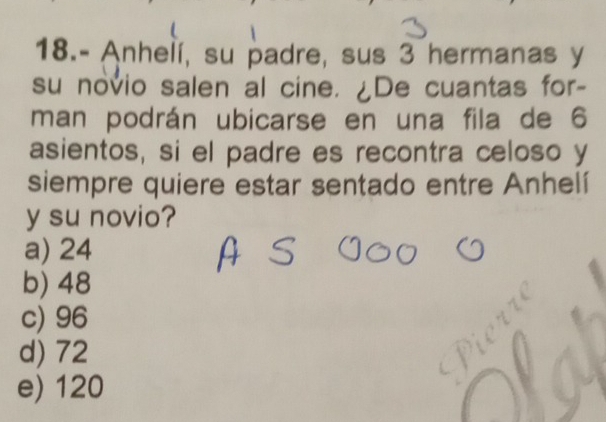 1 1 3
18.- Anhelí, su padre, sus 3 hermanas y
1
su novio salen al cine. ¿De cuantas for-
man podrán ubicarse en una fila de 6
asientos, si el padre es recontra celoso y
siempre quiere estar sentado entre Anhelí
y su novio?
a) 24
A S OOO O
b) 48
c) 96
d) 72
e) 120
Pierre